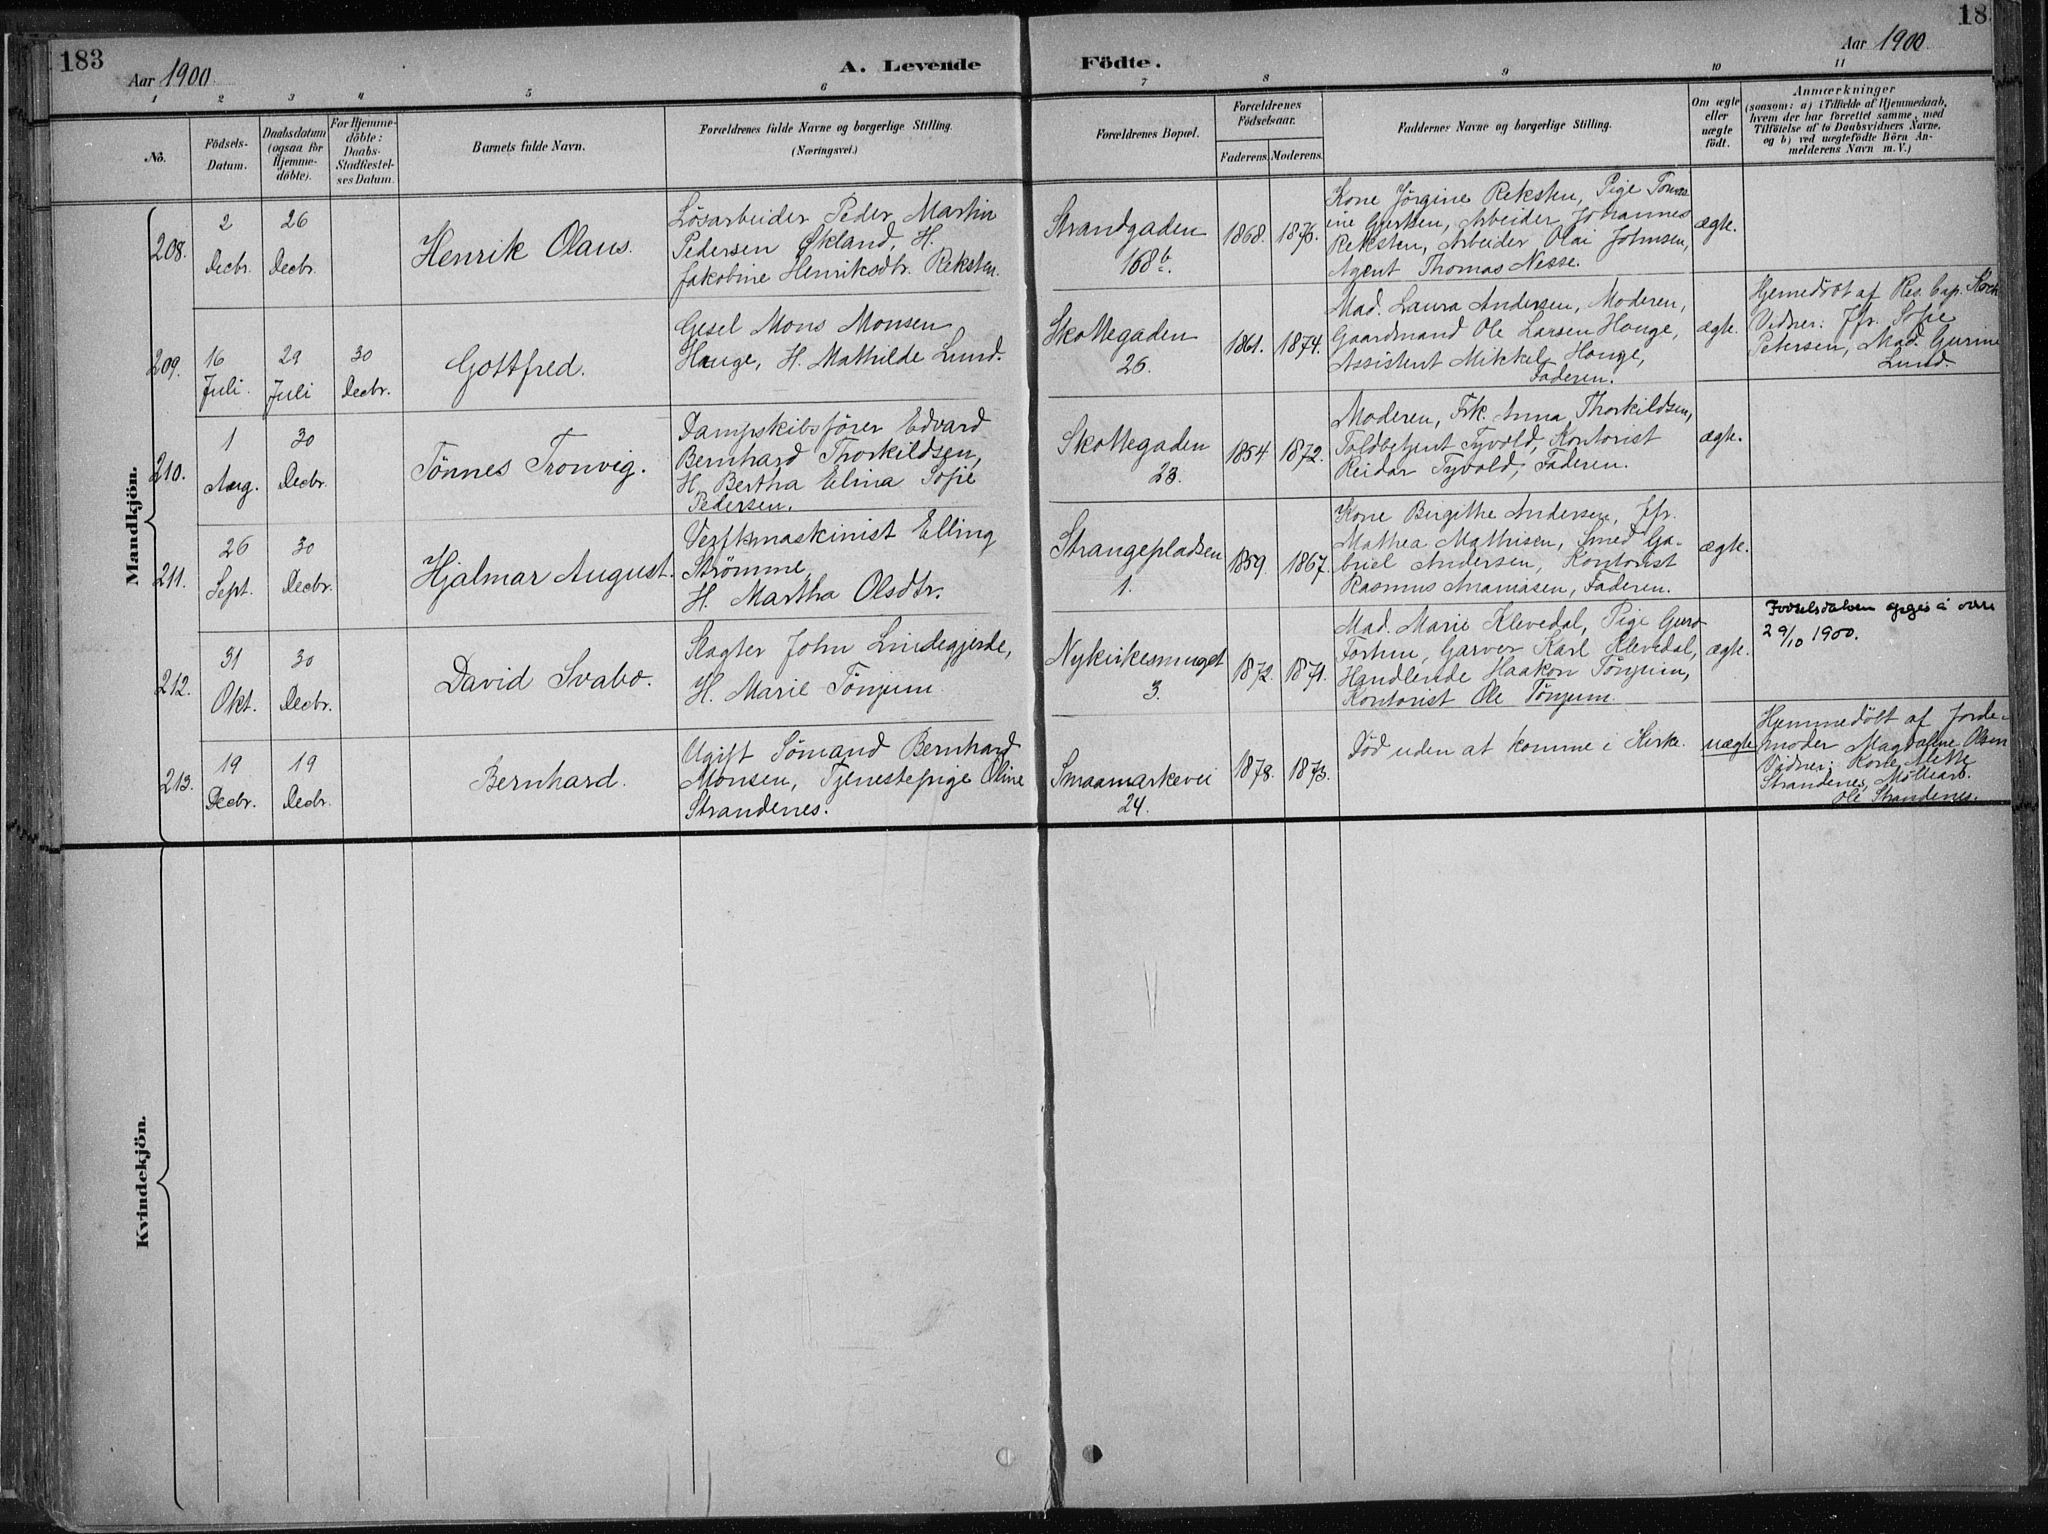 183
Aar 1900
A. Levende
Födte.
18
Aar 1900
1 2 3 4 5 6 7 8 9 10 11
No.
Födsels-
Datum.
Daabsdatum
(ogsaa for
Hjemme-
döbte).
For Hjemme-
döbte:
Daabs-
Stadfæstel-
ses Datum.
Barnets fulde Navn.
Forældrenes fulde Navne og borgerlige Stilling.
(Næringsvei.)
Forældrenes Bopæl.
Forældrenes
Födselsaar.
Faderens. Moderens.
Faddernes Navne og borgerlige Stilling.
Om ægte
eller
uægte
födt.
Anmærkninger
(saasom: a) i Tilfælde af Hjemmedaab,
hvem der har forrettet samme, med
Tilföielse af to Daabsvidners Navne,
og b) ved uægtefödte Börn An-
melderens Navn m. V.)
Mandkjön.
208.
2
Decbr.
26
Decbr.
Henrik Olaus.
Lösarbeider Peder Martin
Pedersen Økland, H.
Jakobine Henriksdtr. Reksten.
Strandgaden
168b.
1868. 1876.
Kone Jørgine Reksten, Pige
ine Gjertsen, Arbeider Johannes
Reksten, Arbeider Olai Johnsen,
Agent Thomas Nesse.
ægte.
209.
16
Juli.
29
Juli
30
Decbr.
Gottfred.
Gesel Mons Monsen
Hauge, H. Mathilde Lund.
Skottegaden
26.
1861. 1874.
Mad. Laura Andersen, Moderen,
Gaardmand Ole Larsen Houge,
Assistent Mikkel Houge,
Faderen.
ægte.
Hjemedöbt af Res. Cap. Koch
Vidner: Jfr. Sofie
Petersen, Mad. Gurine
Lund.
210.
1
Aug.
30
Decbr.
Tönnes Tronvig.
Dampskibsförer Edvard
Bernhard Thorkildsen,
H. Bertha Elina Sofie
Pedersen.
Skottegaden
23.
1854 1872.
Moderen, Frk. Anna Thorkildsen,
Toldbetjent Tyvold, Kontorist
Reidar Tyvold, Faderen.
ægte.
211.
26
Sept.
30
Decbr.
Hjalmar August.
Verftsmaskinist Elling
Strømme,
H. Martha Olsdtr.
Strangepladsen
1.
1859. 1867.
Kone Birgithe Andersen, Jfr.
Mathea Mathisen, Smed Ga-
briel Andersen, Kontorist
Rasmus Ananiasen, Faderen.
ægte.
212.
31
Okt.
30
Decbr.
David Svabo.
Slagter John Lindegjerde,
H. Marie Tönjum
Nykirkesmuget
3.
1872. 1871.
Mad. Marie Klevedal, Pige Guro
Fortun, Garver Karl Klevedal,
Handlende Haakon Tönjum,
Kontorist Ole Tönjum.
ægte.
Fødselsdatoen opgis å være
29/10 1900.
213.
19
Decbr.
19
Decbr.
Bernhard.
Ugift Sömand Bernhard
Monsen, Tjenestepige Oline
Strandenes.
Smaamarkevei
24.
1878. 1873.
Död uden at komme i Kirke.
uægte
Hjemmedöbt af Jorde-
moder Magdalene Olsen
Vidner: Kone Mette
Strandenes,
Ole Strandenes.
Kvindekjön.